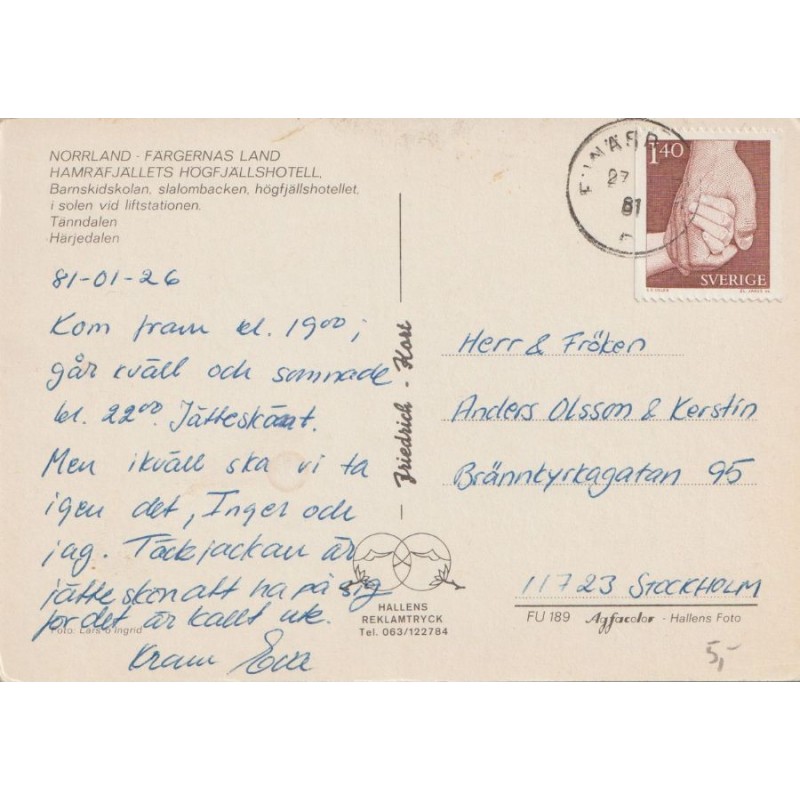 NORRLAND - FÄRGERNAS LAND
HAMRAFJÄLLETS HÖGFJÄLLSHOTELL,
Barnskidskolan, slalombacken, högfjällshotellet,
i solen vid liftstationen.
Tänndalen
Härjedalen
81-01-26
Kom fram kl. 19⁰⁰ i
går kväll och somnade
kl. 22⁰⁰. Jätteskönt.
Men ikväll ska vi ta
igen det, Inger och
jag. Täckjackan är
jätteskön att ha på sig
för det är kallt ute.
Kram Eva
Foto: Lars o Ingrid
Friedrich - Kort
HALLENS
REKLAMTRYCK
Tel. 063/122784
FUNÄSD
27
81
1.40
SVERIGE
Herr & Fröken
Anders Olsson & Kerstin
Brännkyrkagatan 95
11723 STOCKHOLM
FU 189 Agfacolor - Hallens Foto
5,-